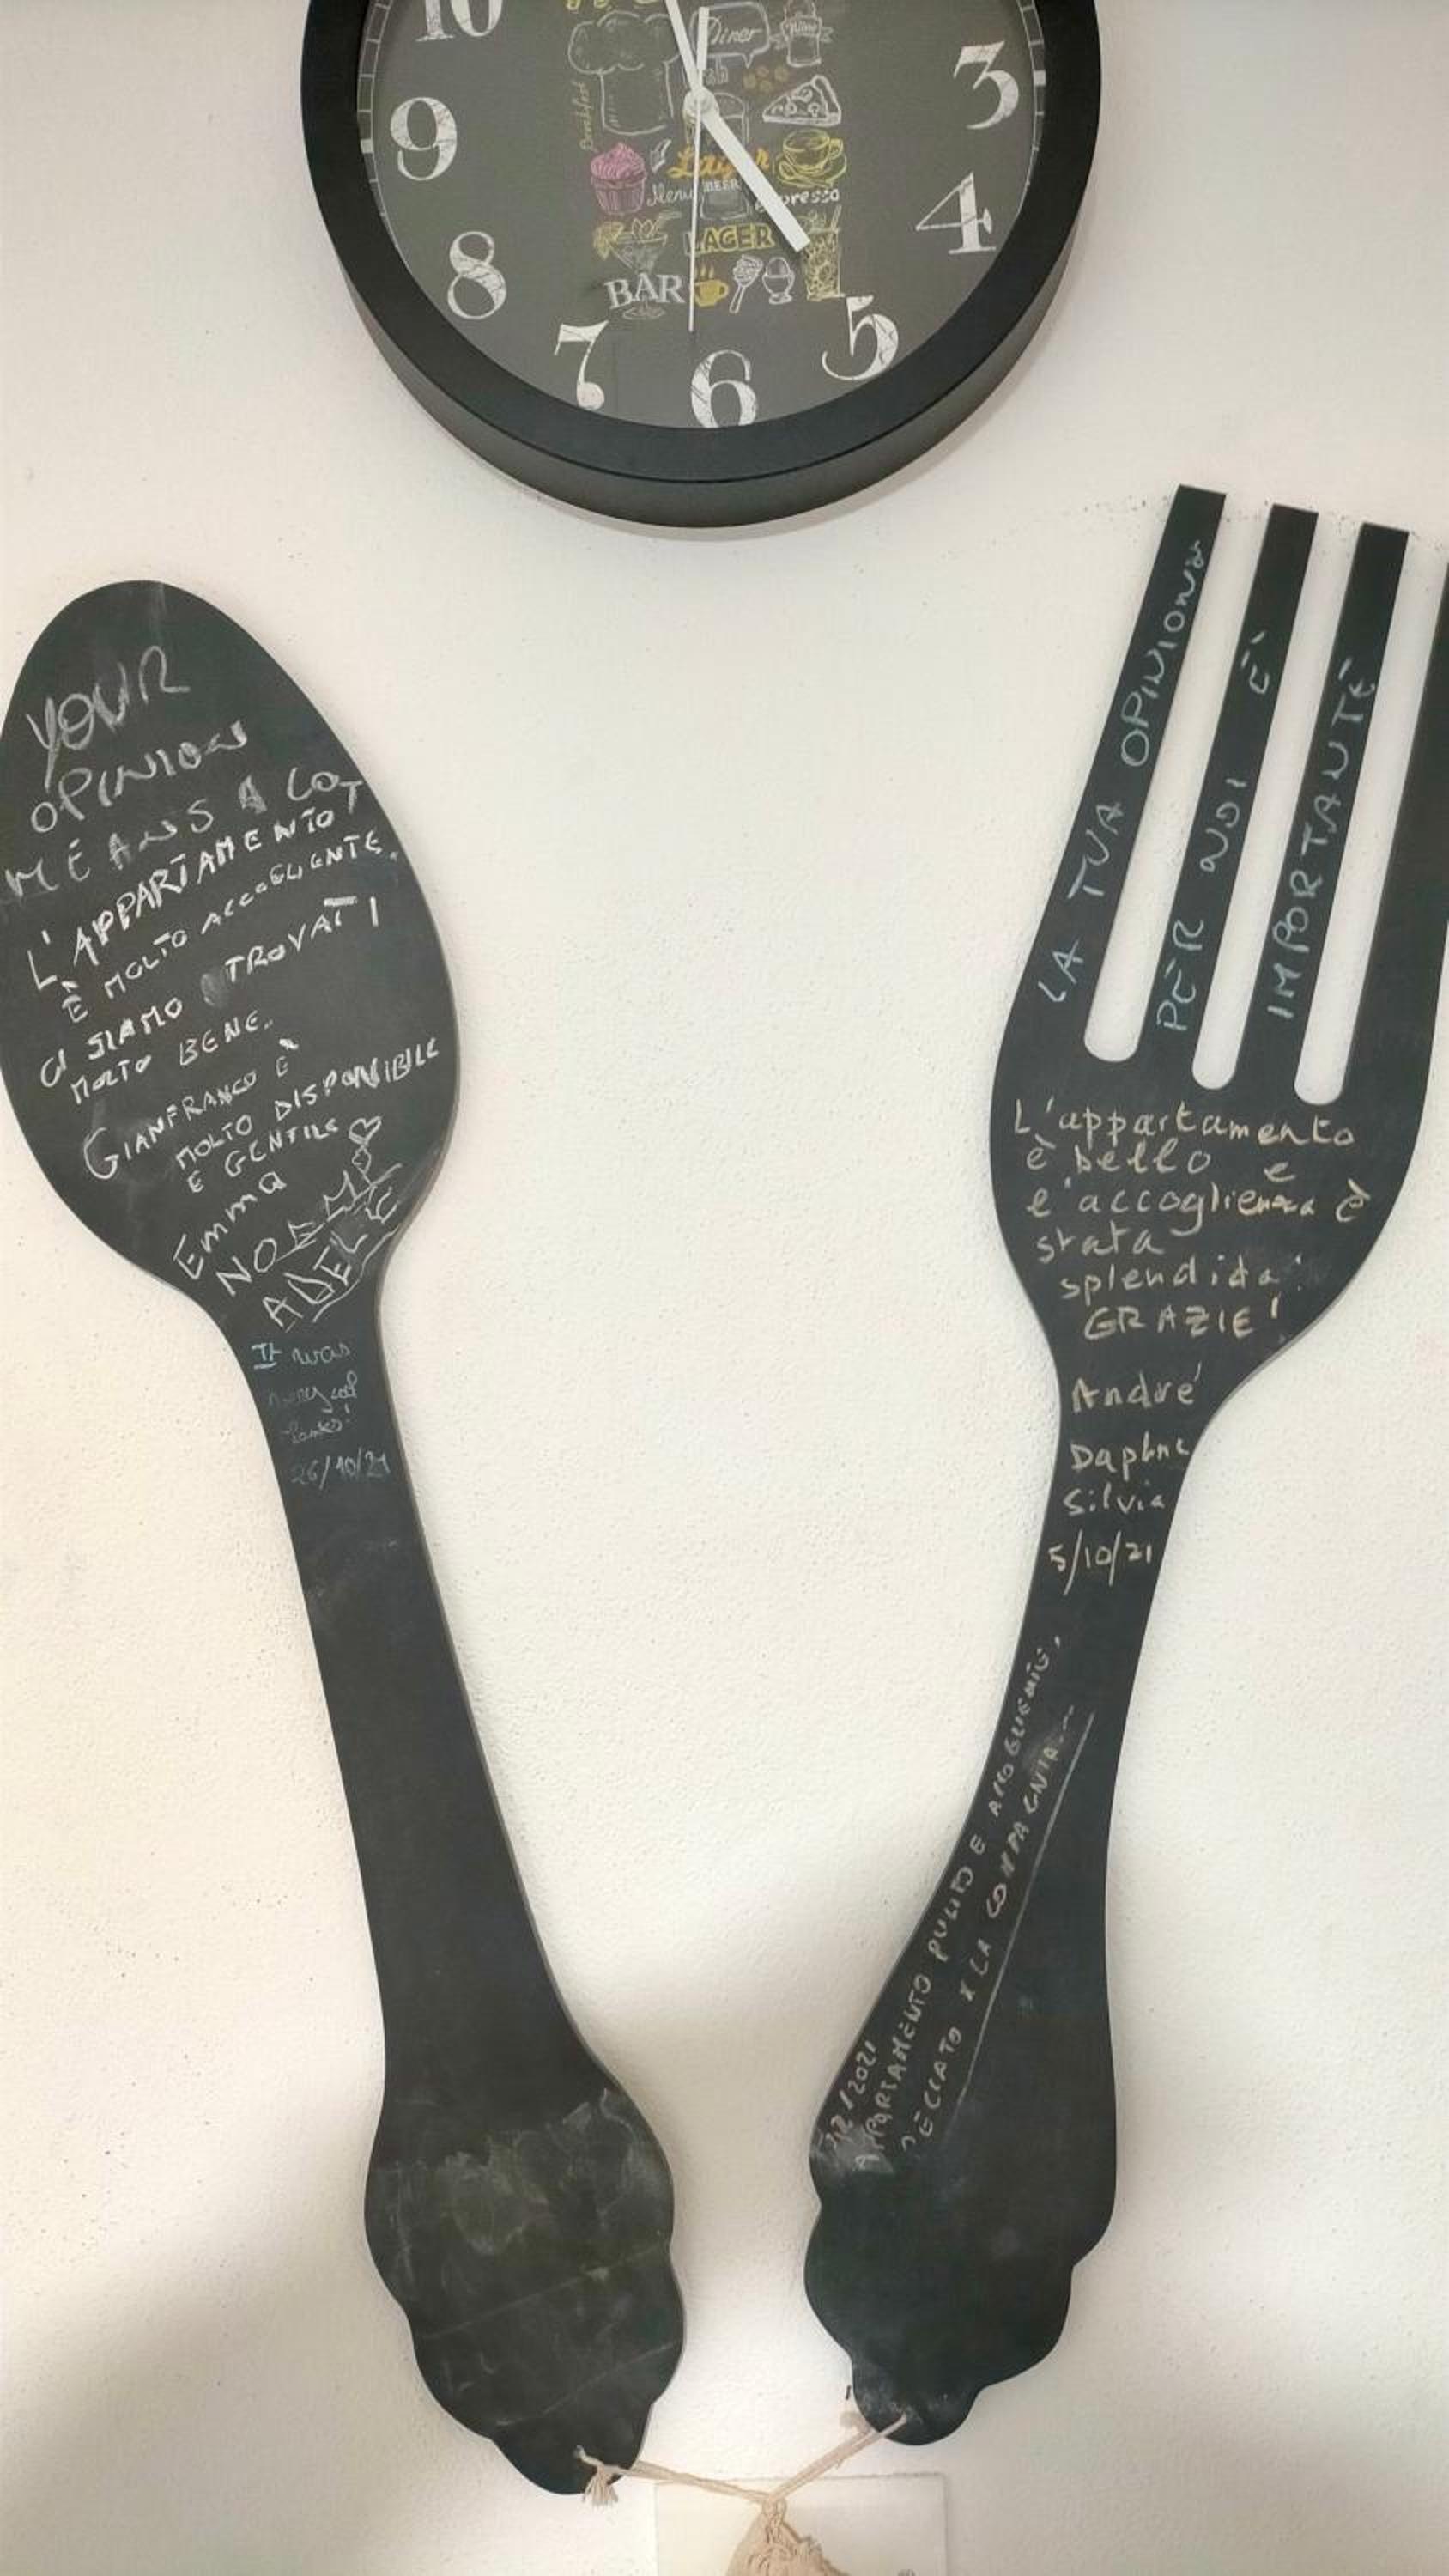 10
Diner
3
Breakfast
9
Lager
Menu
BEER
4
LAGER
8
BAR
5
7
6
YOUR
OPINION
MEANS A LOT
L'APPARTAMENTO
È MOLTO ACCOGLIENTE.
CI SIAMO TROVATI
MOLTO BENE.
GIANFRANCO È
MOLTO DISPONIBILE
E GENTILE
Emma
NOEMI
ADELE
It was
26/10/21
LA TUA OPINIONE
PER NOI È
IMPORTANTE
L'appartamento
è bello e
l'accoglienza è
stata
splendida!
GRAZIE!
André
Daphne
Silvia
5/10/21
/2021
APPARTAMENTO PULITO E
PECCATO X LA COMPAGNIA...